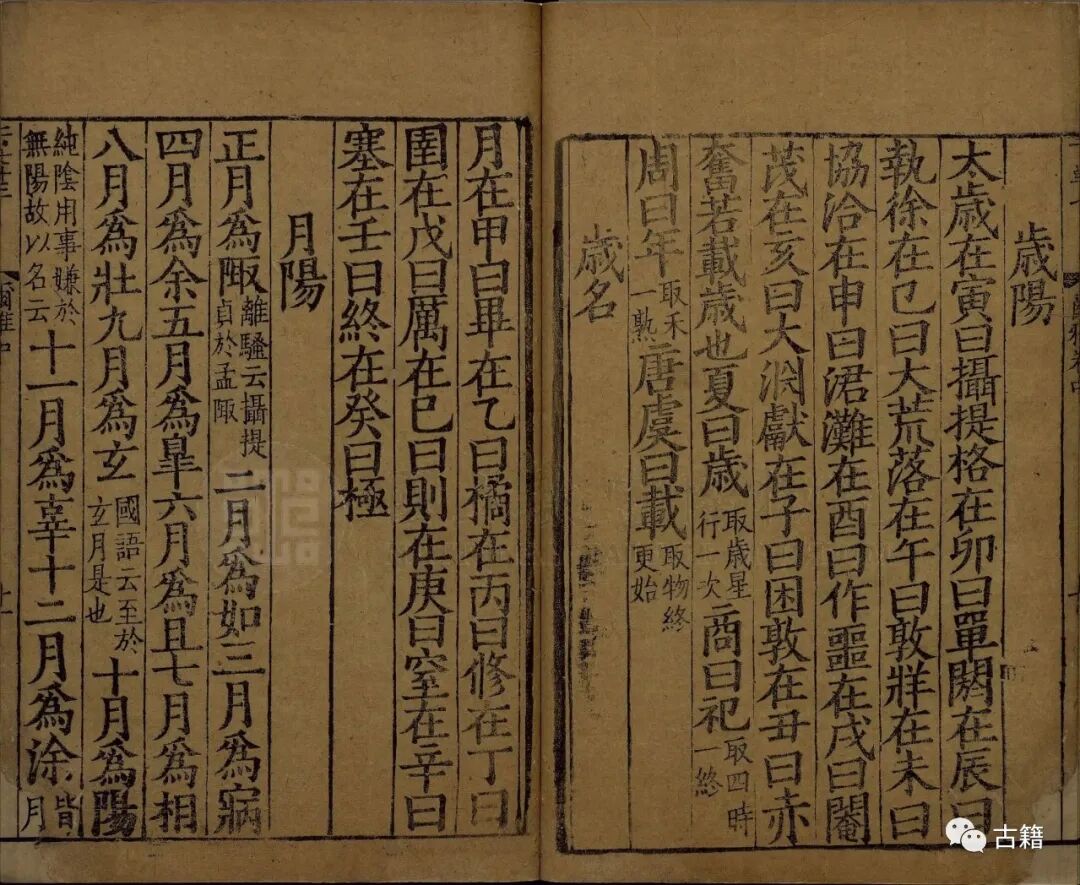 歲陽
太歲在寅曰攝提格在卯曰單閼在辰曰
執徐在巳曰大荒落在午曰敦牂在未曰
協洽在申曰涒灘在酉曰作噩在戌曰閹
茂在亥曰大淵獻在子曰困敦在丑曰赤
奮若載歲也夏曰歲取歲星行一次商曰祀取四時一終
周曰年取禾一熟唐虞曰載取物終更始
歲名
月在甲曰畢在乙曰橘在丙曰修在丁曰
圉在戊曰厲在己曰則在庚曰窒在辛曰
塞在壬曰終在癸曰極
月陽
正月爲陬離騷云攝提貞於孟陬二月爲如三月爲寎
四月爲余五月爲皐六月爲且七月爲相
八月爲壯九月爲玄國語云至於玄月是也十月爲陽
純陰用事嫌於無陽故以名云十一月爲辜十二月爲涂皆月
古籍